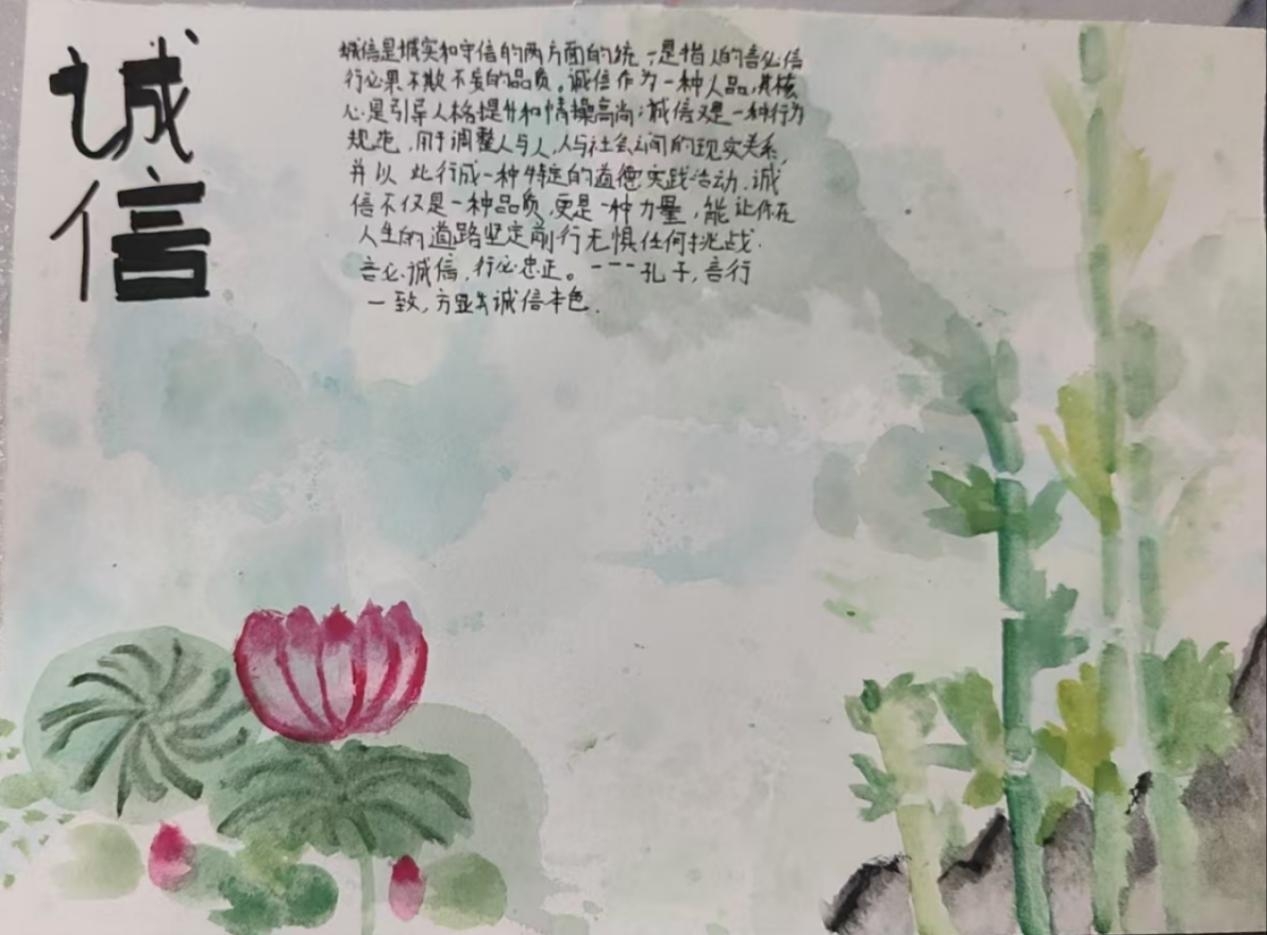 诚
信
诚信是诚实和守信的两方面的统一,是指人的言必信
行必果不欺不妄的品质。诚信作为一种人品,其核
心是引导人格提升和情操高尚;诚信又是一种行为
规范,用于调整人与人,人与社会之间的现实关系,
并以此行成一种特定的道德实践活动.诚
信不仅是一种品质,更是一种力量,能让你在
人生的道路坚定前行无惧任何挑战.
言必诚信,行必忠正。---孔子,言行
一致,方显诚信本色.